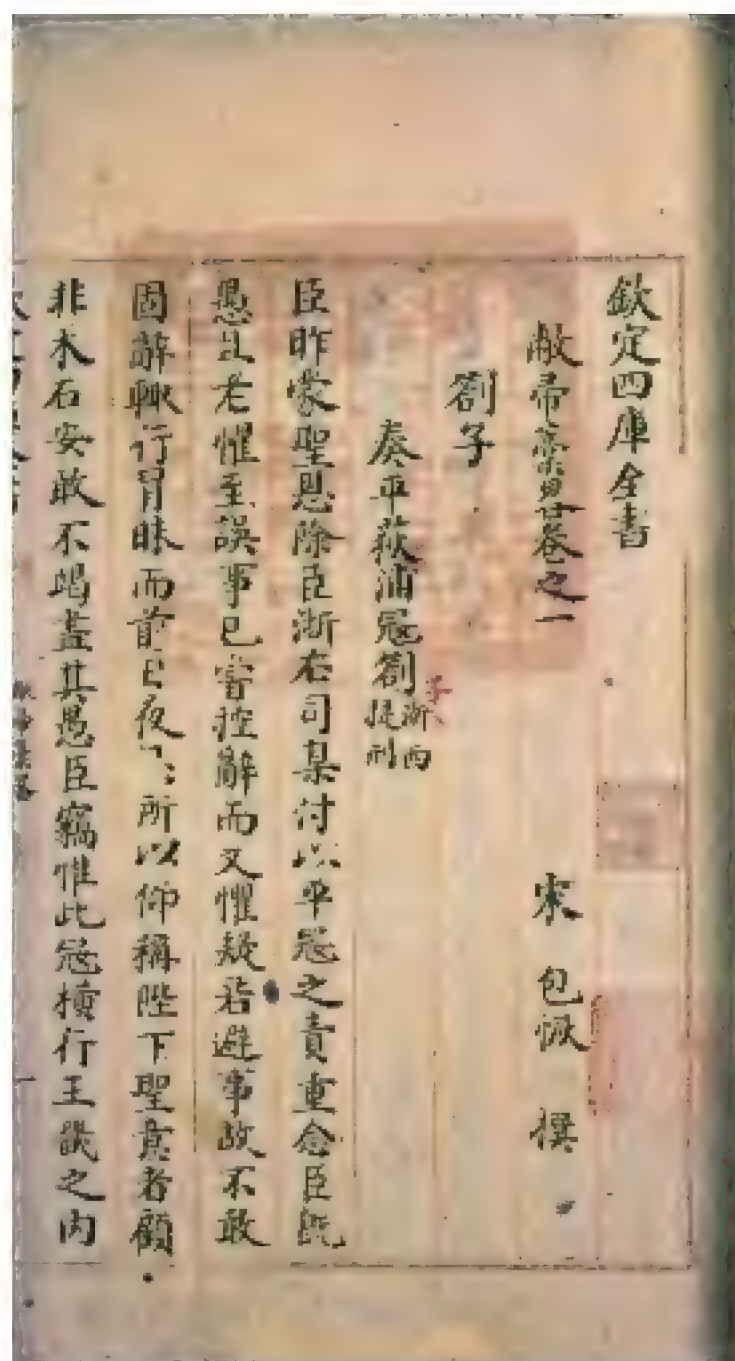 欽定四庫全書
敝帚藁畧卷之一
宋 包恢 撰
劄子
奏平荻浦寇劄子 浙西提刑
臣昨蒙聖恩除臣浙右司臬付以平寇之責重念臣既
愚且老懼至誤事已嘗控辭而又懼疑若避事故不敢
固辭輒行冒昧而前日夜 所以仰稱陛下聖意者顧
非木石安敢不竭盡其愚臣竊惟此寇橫行王畿之内